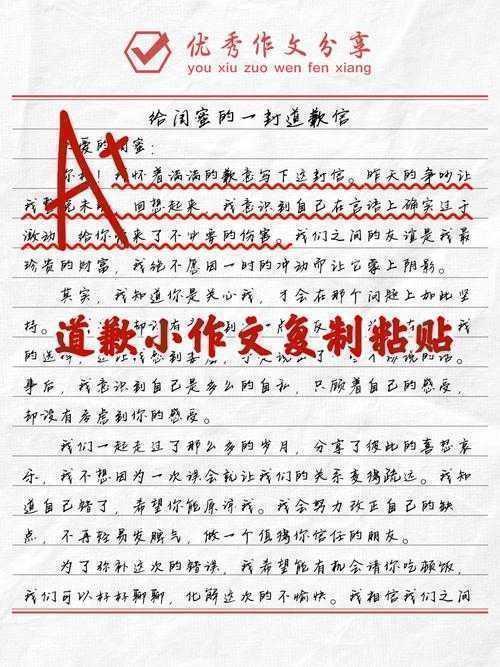 优秀作文分享
you xiu zuo wen fen xiang
给闺蜜的一封道歉信
爱的闺蜜:
A+
你好!我怀着满满的歉意写下这封信。昨天的争吵让
我整夜未 回想起来,我意识到自己在言语上确实过于
激动 给你带来了不必要的伤害。我们之间的友谊是我最
珍贵的财富,我绝不愿因一时的冲动而让它蒙上阴影。
其实,我知道你是关心我,才会在那个问题上如此坚
持。
道歉小作文复制粘贴
我
的选择 话。
事后,我意识到自己是多么的自私,只顾着自己的感受,
却没有考虑到你的感受。
我们一起走过了那么多的岁月,分享了彼此的喜怒哀
乐,我不想因为一次误会就让我们的关系变得疏远。我知
道自己错了,希望你能原谅我。我会努力改正自己的缺
点,不再轻易发脾气,做一个值得你信任的朋友。
为了弥补这次的错误,我希望能有机会请你吃顿饭,
我们可以好好聊聊,化解这次的不愉快。我相信我们之间